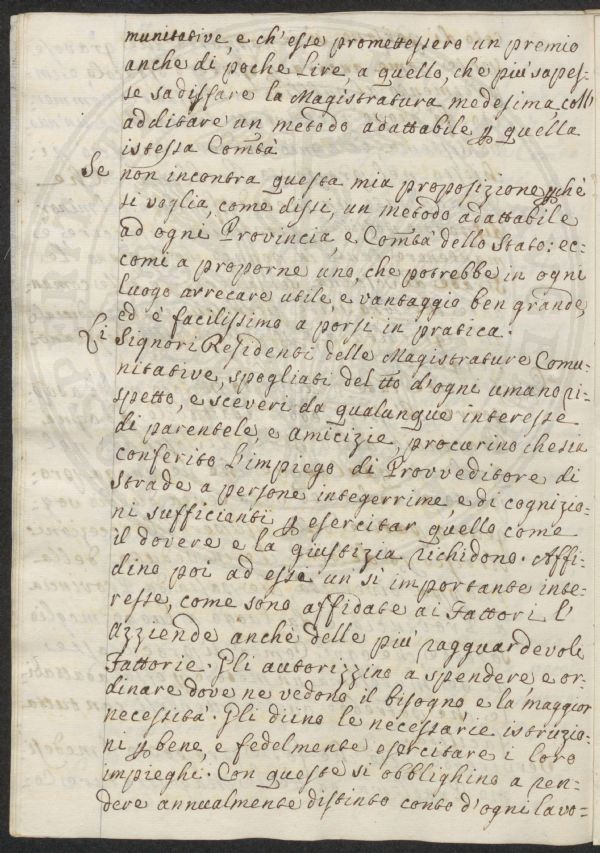 munitative, e ch'esse promettessero un premio
anche di poche Lire, a quello, che più sapes-
se sadisfare la Magistratura medesima, coll'
additare un metodo adattabile p quella
istessa Comtà
Se non incontra questa mia proposizione, pchè
si voglia, come dissi, un metodo adattabile
ad ogni Provincia, e Comtà dello Stato: ec-
comi a proporne uno, che potrebbe in ogni
luogo arrecare utile, e vantaggio ben grande,
ed è facilissimo a porsi in pratica.
Li Signori Residenti delle Magistrature Comu-
nitative, spogliati del tto d'ogni umano ri-
spetto, e sceveri da qualunque interesse
di parentele, e amicizie, procurino che sia
conferito l'impiego di Provveditore di
strade a persone integerrime e di cognizio-
ni sufficianti p esercitar quello come
il dovere e la giustizia richidono. Affi-
dino poi ad essi un sì importante inte-
resse, come sono affidate ai Fattori l'
azziende anche delle più ragguardevoli
Fattorie. Gli autorizzino a spendere e or-
dinare dove ne vedono il bisogno e la maggior
necessità. Gli diino le necessarie istruzio-
ni p bene, e fedelmente esercitare i loro
impieghi. Con queste si obblighino a ren-
dere annualmente distinto conto d'ogni lavo-